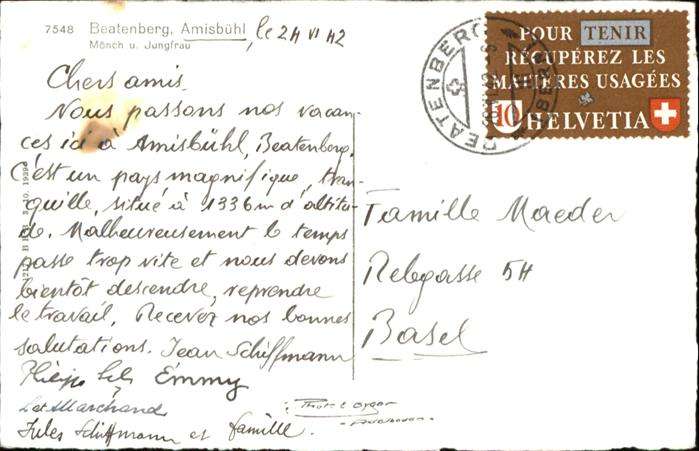 7548 Beatenberg, Amisbühl
Mönch u. Jungfrau
le 24 VI 42
Chers amis.
Nous passons nos vacan-
ces ici à Amisbühl, Beatenberg.
C'est un pays magnifique, tran-
quille, situé à 1336m d'altitu-
de. Malheureusement le temps
passe trop vite et nous devons
bientôt descendre, reprendre
le travail. Recevez nos bonnes
salutations. Jean Schiffmann
Emmy
Marchand
Jules Schiffmann et famille.
Famille Maeder
Rebgasse 54
Basel
POUR TENIR
RÉCUPÉREZ LES
MATIÈRES USAGÉES
10 HELVETIA
BEATENBERG